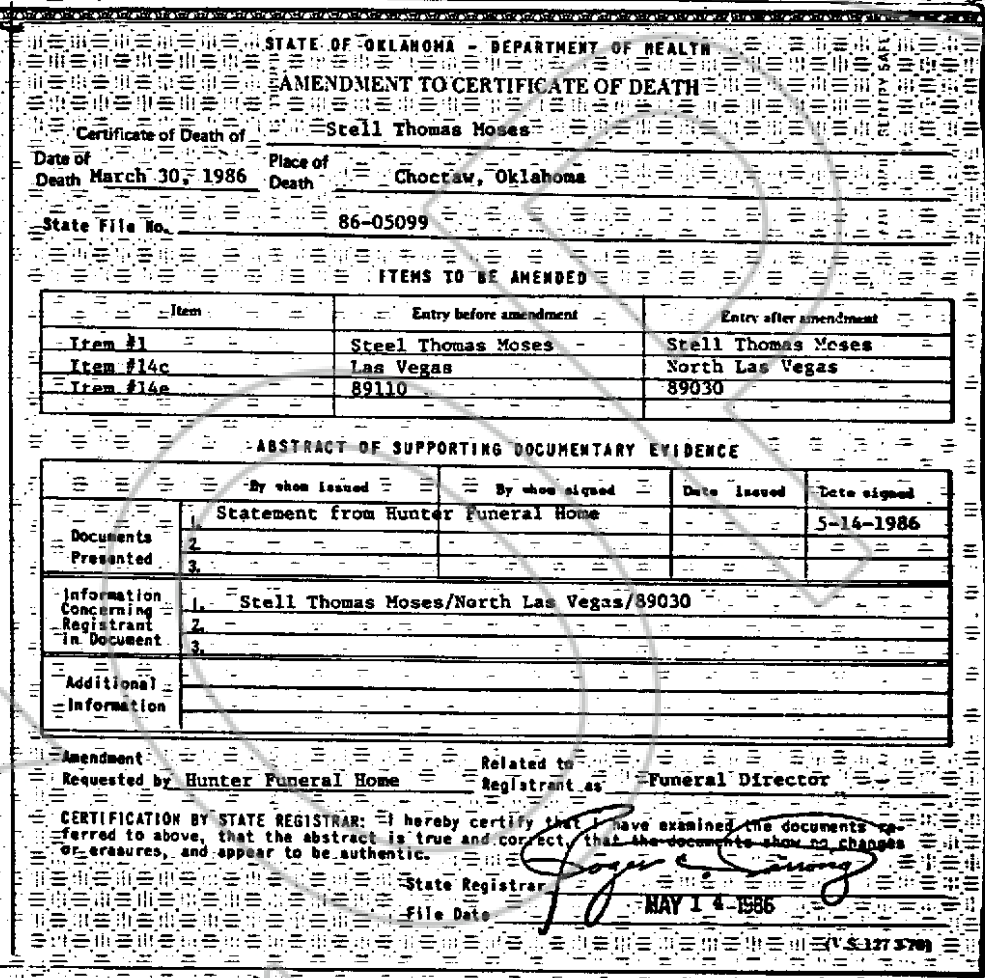 STATE OF OKLAHOMA - DEPARTMENT OF HEALTH
AMENDMENT TO CERTIFICATE OF DEATH
Certificate of Death of Stell Thomas Moses
Date of Death March 30, 1986 Place of Death Choctaw, Oklahoma
State File No. 86-05099
ITEMS TO BE AMENDED
Item Entry before amendment Entry after amendment
Item #1 Steel Thomas Moses Stell Thomas Moses
Item #14c Las Vegas North Las Vegas
Item #14e 89110 89030
ABSTRACT OF SUPPORTING DOCUMENTARY EVIDENCE
By whom issued By whom signed Date issued Date signed
Documents Presented
1. Statement from Hunter Funeral Home 5-14-1986
2.
3.
Information Concerning Registrant in Document
1. Stell Thomas Moses/North Las Vegas/89030
2.
3.
Additional Information
Amendment Requested by Hunter Funeral Home Related to Registrant as Funeral Director
CERTIFICATION BY STATE REGISTRAR: I hereby certify that I have examined the documents re-
ferred to above, that the abstract is true and correct, that the documents show no changes
or erasures, and appear to be authentic.
State Registrar Roger C.
File Date MAY 14 1986
(V.S. 127 3-70)